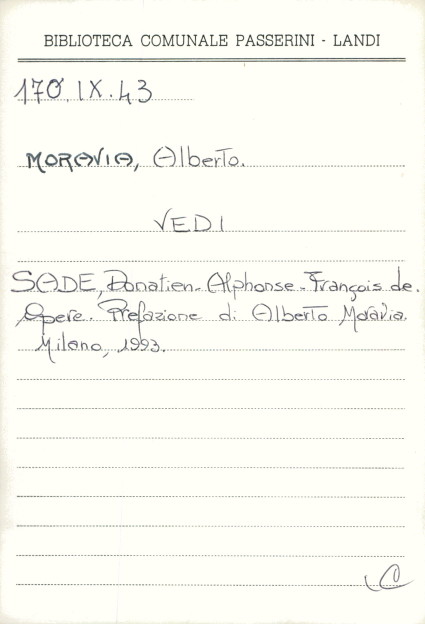 BIBLIOTECA COMUNALE PASSERINI - LANDI
170.IX.43
MORAVIA, Alberto.
VEDI
SADE, Donatien-Alphonse-François de.
Opere. Prefazione di Alberto Moravia.
Milano, 1993.